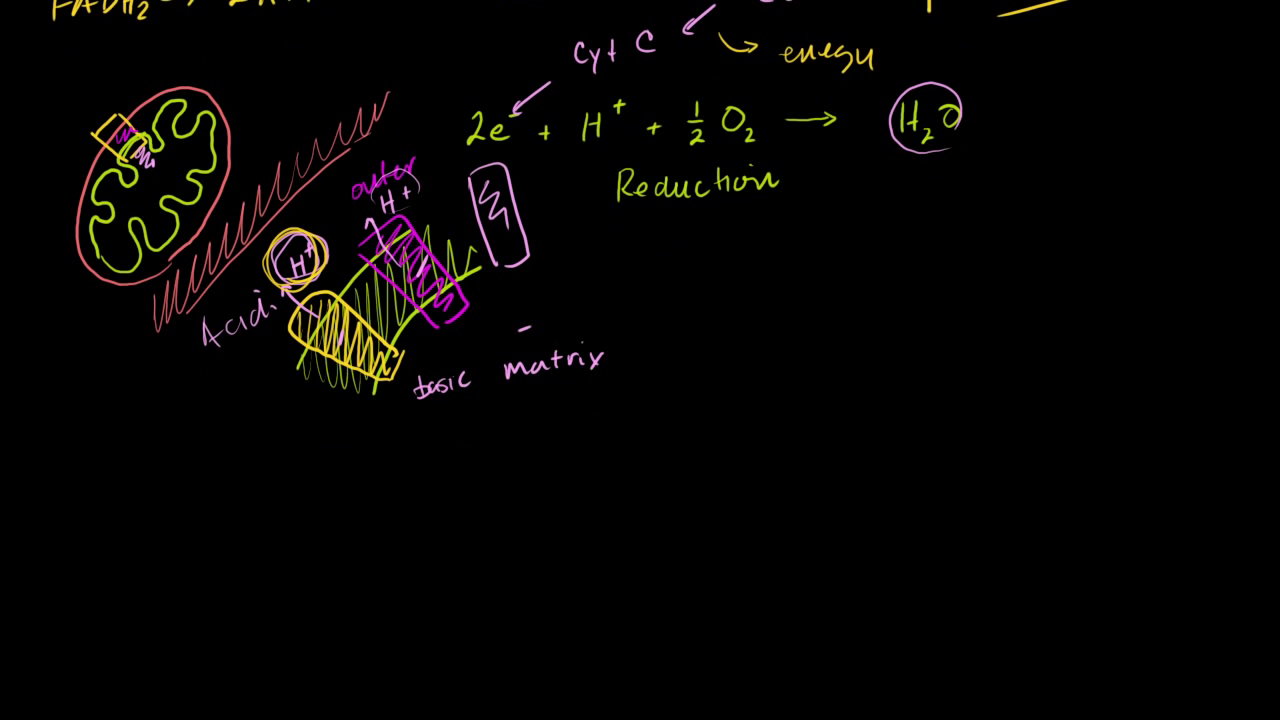 FADH₂ →
Cyt C
energy
2e⁻ + H⁺ + ½ O₂ → H₂O
Reduction
outer
H⁺
H⁺
Acidi
basic matrix